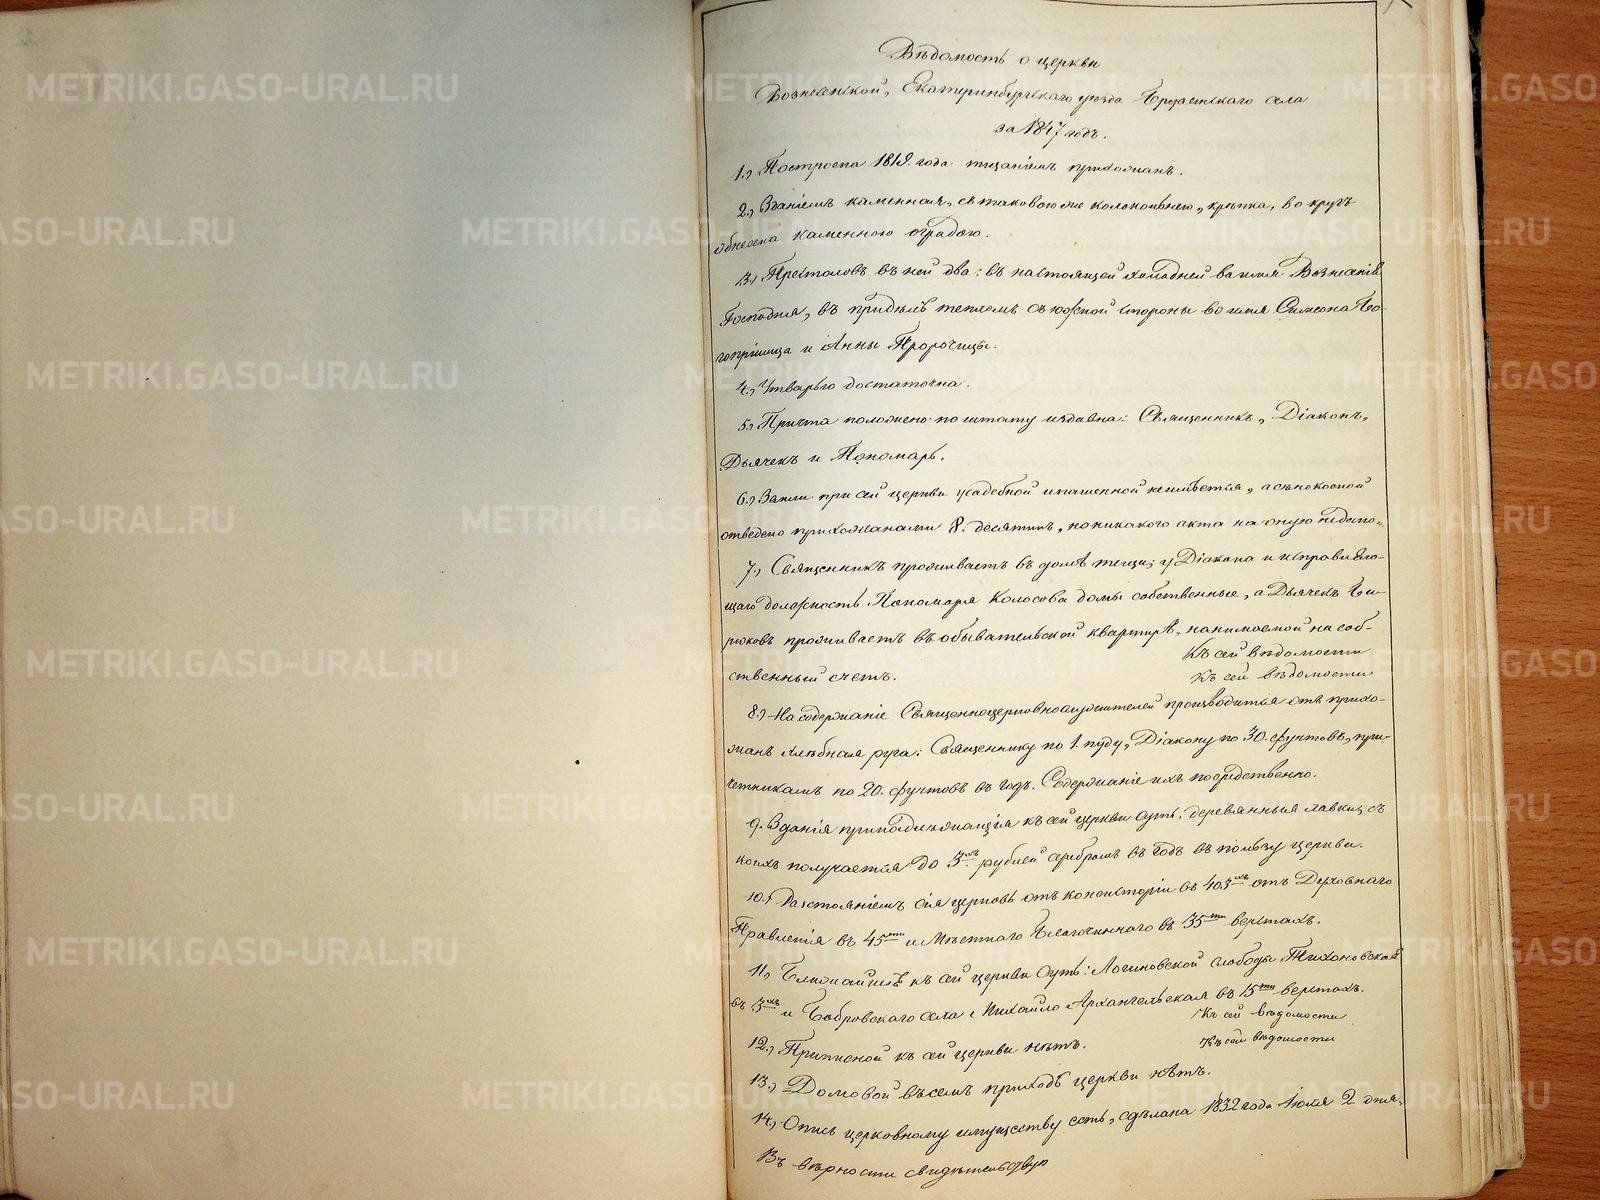 Вѣдомость о церкви
Вознесенской, Екатеринбургскаго уѣзда Брусянскаго села
за 1847 годъ.
1.) Построена 1819. года тщаніемъ прихожанъ.
2.) Зданіемъ каменная, съ таковою же колокольнею, крѣпка, во кругъ
обнесена каменною оградою.
3.) Престоловъ въ ней два: въ настоящей холодней во имя Вознесенія
Господня, въ придѣлѣ тепломъ съ южной стороны во имя Симеона Бо-
гопріимца и Анны Пророчицы.
4.) Утварью достаточна.
5.) Причта положено по штату издавна: Священникъ, Діаконъ,
Дьячекъ и Пономарь.
6.) Земли при сей церкви усадебной и пашенной неимѣется, а сѣнокосной
отведено прихожанами 8. десятинъ, но никакого акта на оную недано.
7.) Священникъ проживаетъ въ домѣ тещи; у Діакона и исправляю-
щаго должность Пономаря Колосова домы собственные, а Дьячекъ Би-
рюковъ проживаетъ въ обывательской квартирѣ, нанимаемой на соб-
Къ сей вѣдомости
ственный счетъ.
Къ сей вѣдомости
8.) На содержаніе Священноцерковнослужителей производится отъ прихо-
жанъ хлѣбная руга: Священнику по 1. пуду, Діакону по 30. фунтовъ, при-
четникамъ по 20. фунтовъ въ годъ. Содержаніе ихъ посредственно.
9. Зданія принадлежащія къ сей церкви суть: деревянныя лавки, съ
коихъ получается до 3хъ рублей серебромъ въ годъ въ пользу церкви.
10.) Разстояніемъ сія церковь отъ консисторіи въ 403хъ отъ Духовнаго
Правленія въ 45ти и Мѣстнаго Благочиннаго въ 35ти верстахъ.
11.) Ближайшіе къ сей церкви суть: Логиновской слободы Тихоновская
въ 3хъ и Бобровскаго села Михайло Архангельская въ 15ти верстахъ.
Къ сей вѣдомости
12.) Приписной къ сей церкви нѣтъ.
Къ сей вѣдомости
13.) Домовой въ семъ приходѣ церкви нѣтъ.
14.) Опись церковному имуществу есть, сдѣлана 1832 года Іюля 2 дня.
Въ вѣрности свидѣтельствую
METRIKI.GASO-URAL.RU